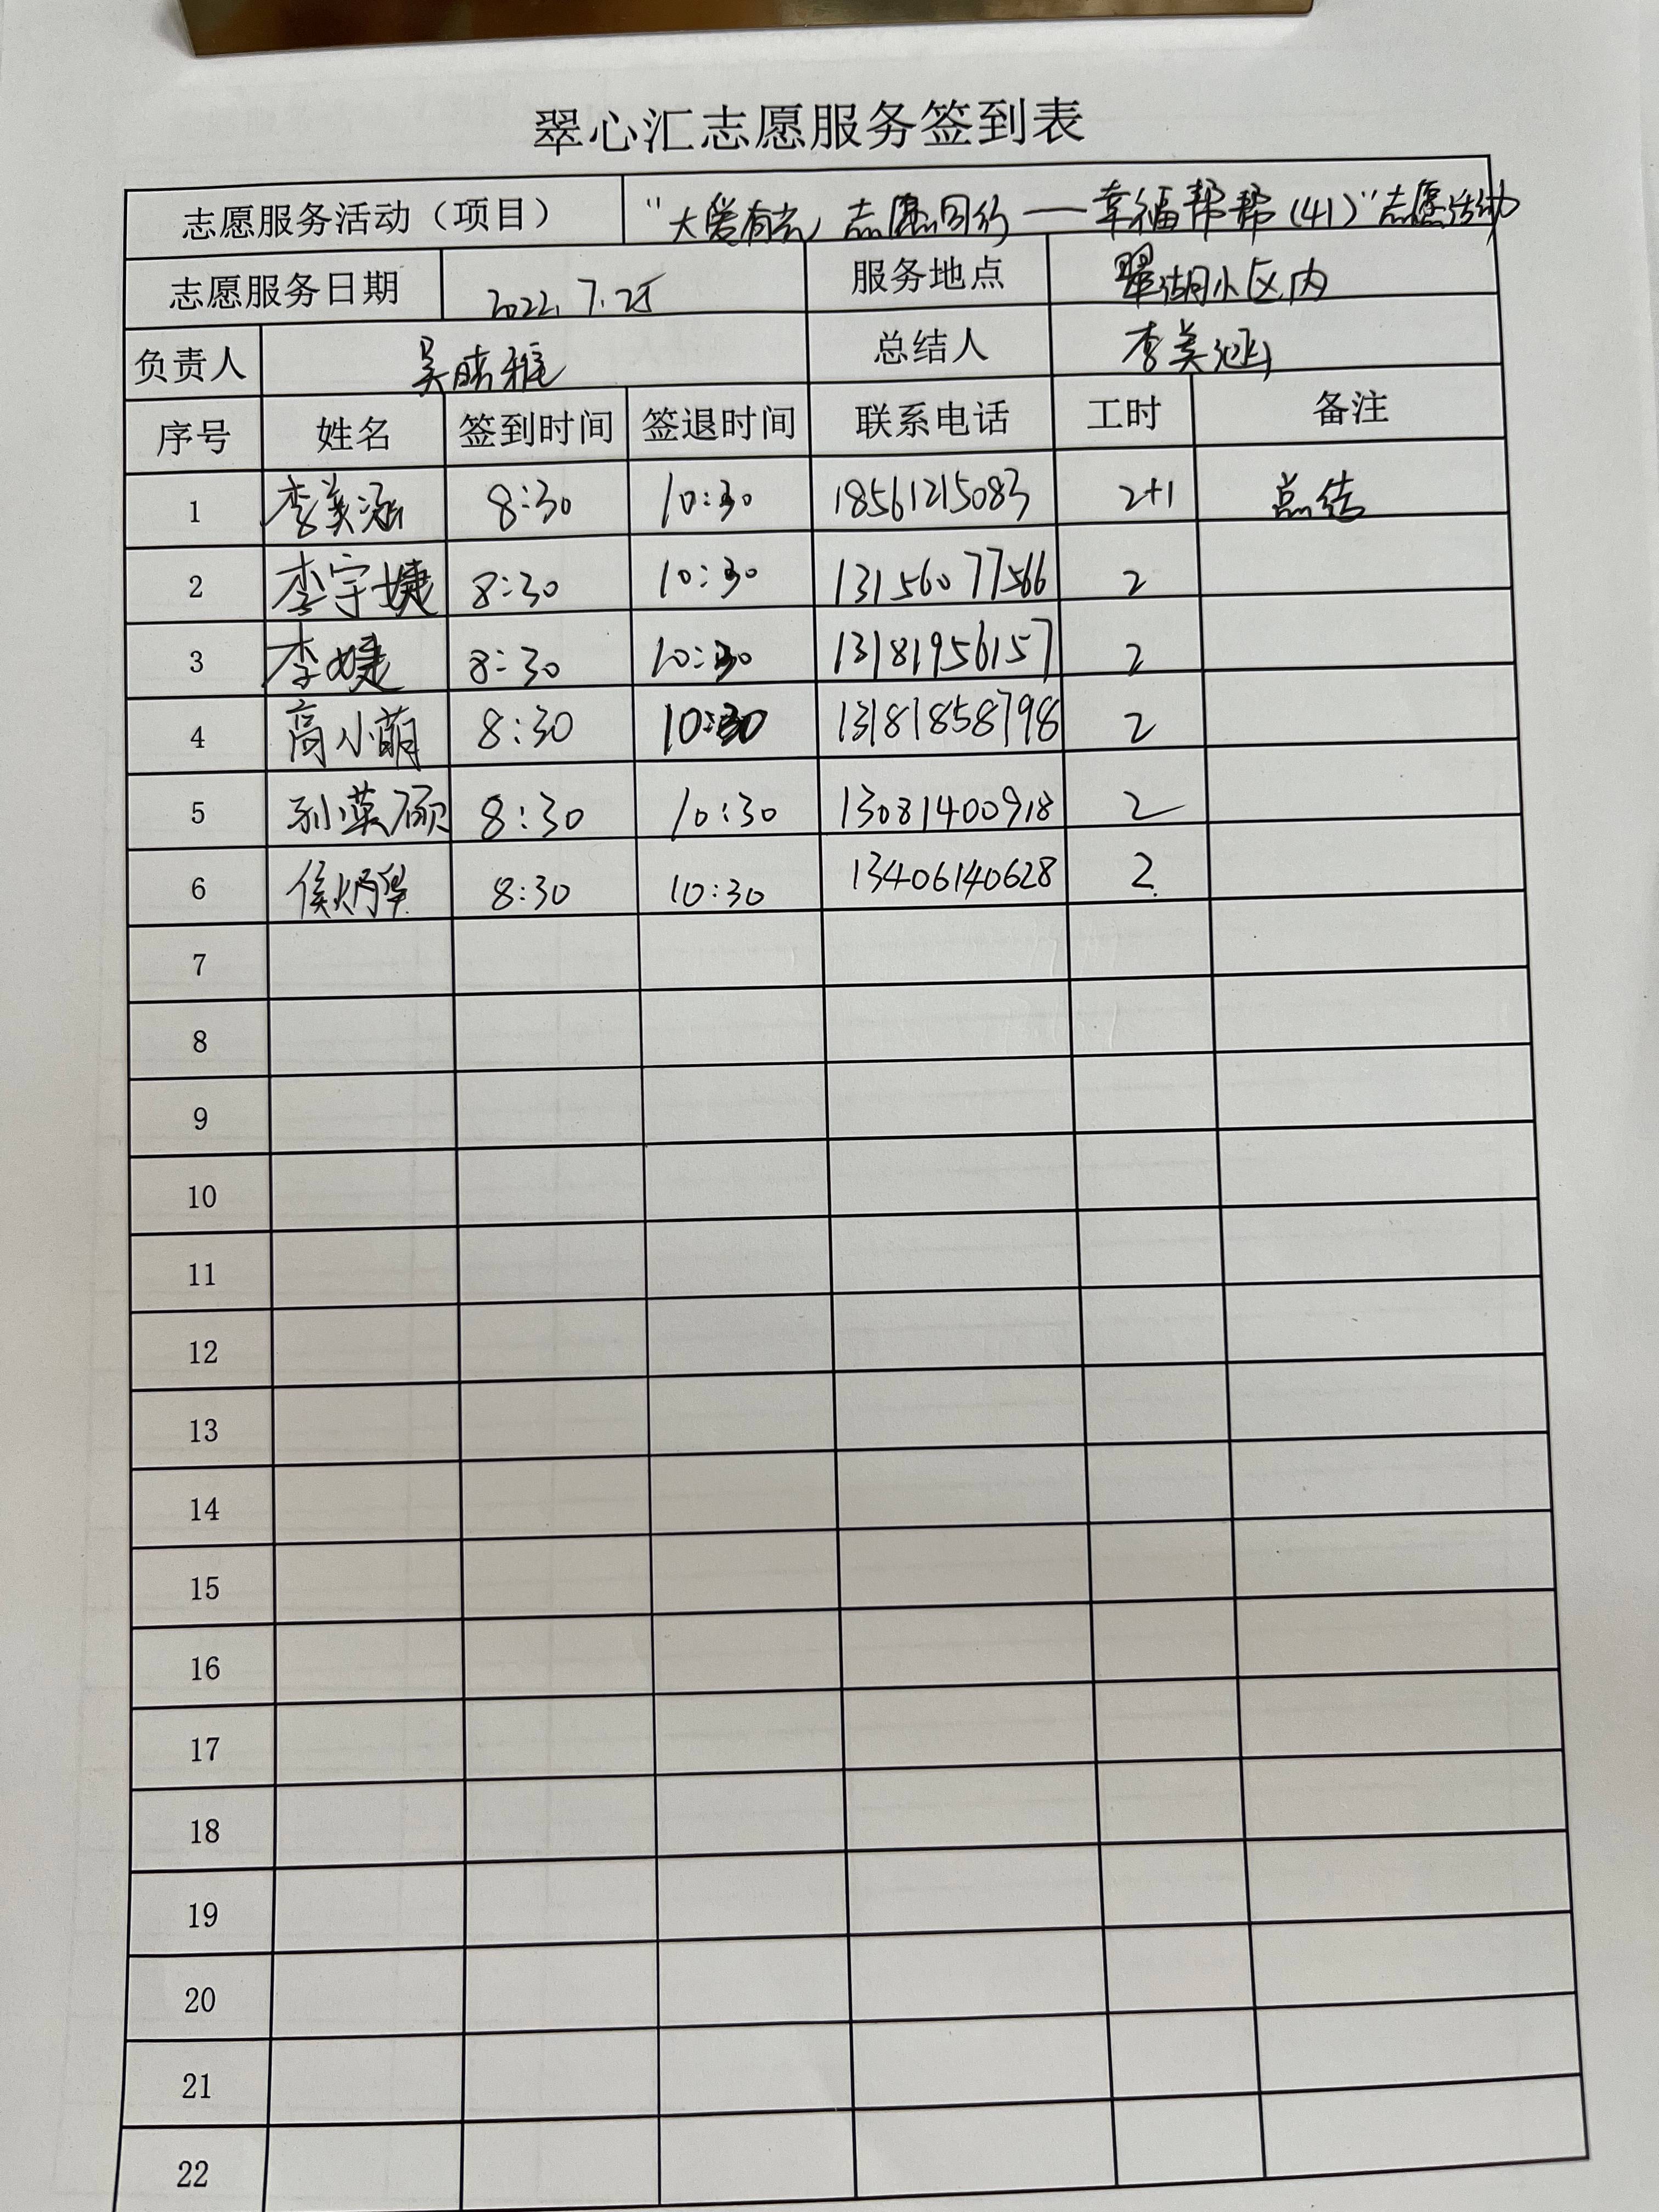 翠心汇志愿服务签到表
志愿服务活动（项目） “大爱有光 志愿同行——幸福帮帮(41)”志愿活动
志愿服务日期 2022.7.25 服务地点 翠湖小区内
负责人 吴晴雅 总结人 李美涵
序号 姓名 签到时间 签退时间 联系电话 工时 备注
1 李美涵 8:30 10:30 18561215083 2+1 总结
2 李宇婕 8:30 10:30 13156077566 2
3 李婕 8:30 10:30 13181956157 2
4 高小萌 8:30 10:30 13181858798 2
5 孙英硕 8:30 10:30 13081400918 2
6 侯炳华 8:30 10:30 13406140628 2
7
8
9
10
11
12
13
14
15
16
17
18
19
20
21
22